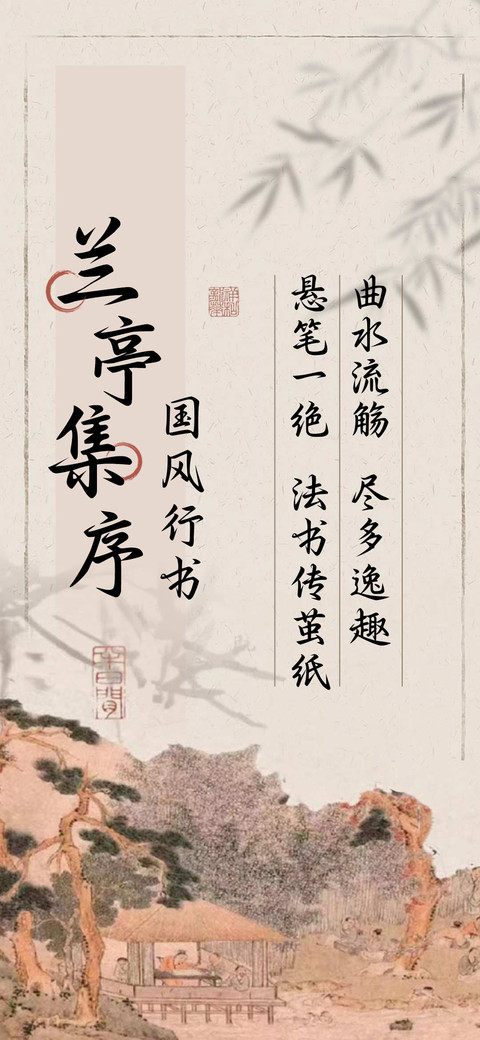 曲水流觞 尽多逸趣
悬笔一绝 法书传茧纸
国风行书
兰亭集序